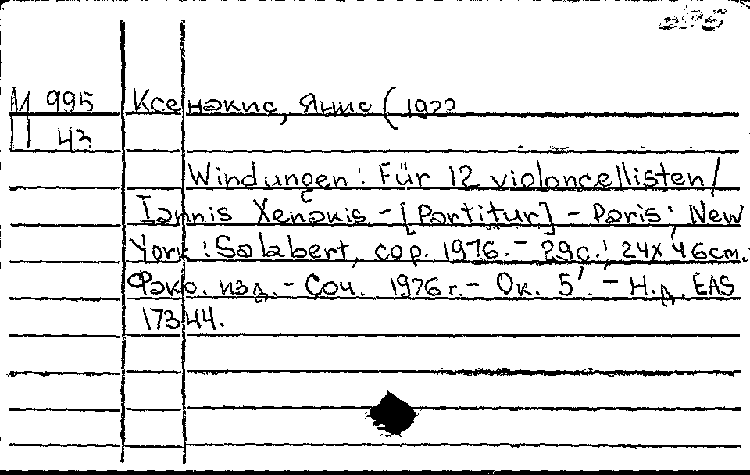 М 995 Ксенакис, Янис (1922
П 43
Windungen : Für 12 violoncellisten /
Iannis Xenakis - [Partitur] - Paris ; New
York : Salabert, cop. 1976. - 29с. ; 24х46см. -
Факс. изд. - Соч. 1976 г. - Ок. 5'. - Н.д. EAS
17344.